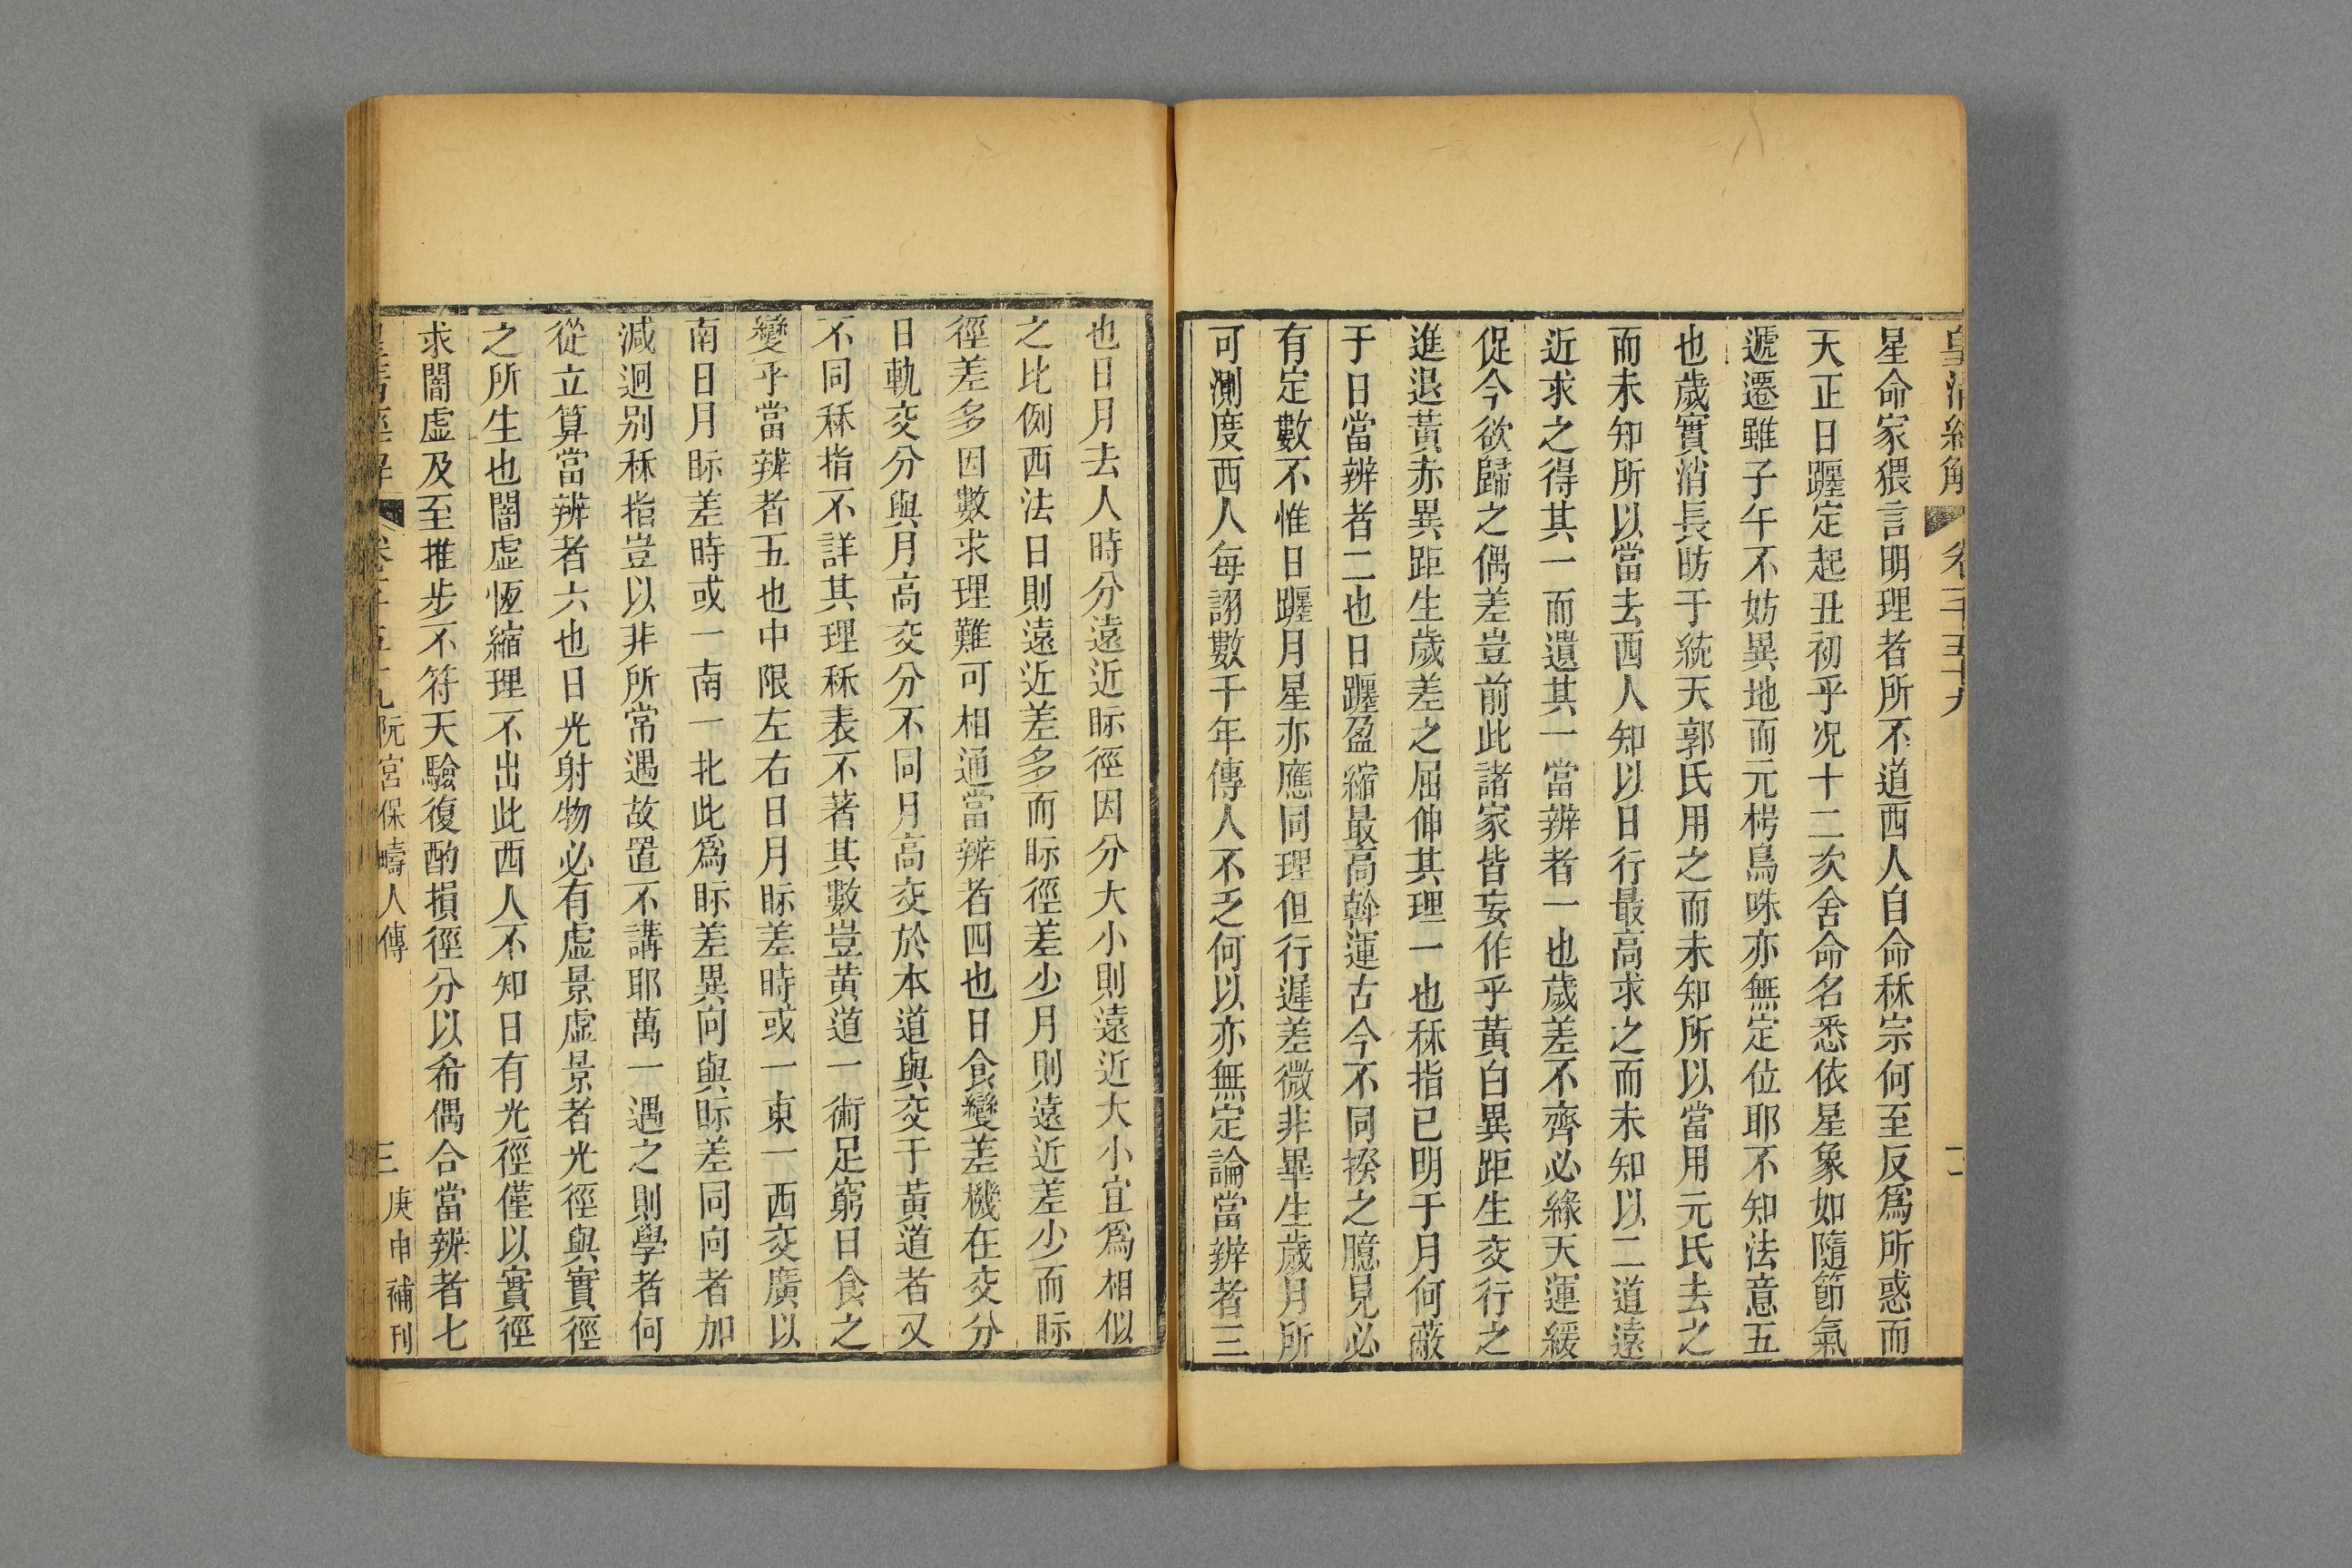 皇清經解 卷一千五十九 二
星命家猥言明理者所不道西人自命秝宗何至反爲所惑而
天正日躔定起丑初乎况十二次舍命名悉依星象如隨節氣
遞遷雖子午不妨異地而元枵鳥咮亦無定位耶不知法意五
也歲實消長昉于統天郭氏用之而未知所以當用元氏去之
而未知所以當去西人知以日行最高求之而未知以二道遠
近求之得其一而遺其一當辨者一也歲差不齊必緣天運緩
促今欲歸之偶差豈前此諸家皆妄作乎黃白異距生交行之
進退黃赤異距生歲差之屈伸其理一也秝指已明于月何蔽
于日當辨者二也日躔盈縮最高斡運古今不同揆之臆見必
有定數不惟日躔月星亦應同理但行遲差微非畢生歲月所
可測度西人每詡數千年傳人不乏何以亦無定論當辨者三
也日月去人時分遠近眎徑因分大小則遠近大小宜爲相似
之比例西法日則遠近差多而眎徑差少月則遠近差少而眎
徑差多因數求理難可相通當辨者四也日食變差機在交分
日軌交分與月高交分不同月高交於本道與交于黃道者又
不同秝指不詳其理秝表不著其數豈黃道一術足窮日食之
變乎當辨者五也中限左右日月眎差時或一東一西交廣以
南日月眎差時或一南一北此爲眎差異向與眎差同向者加
減迥别秝指豈以非所常遇故置不講耶萬一遇之則學者何
從立算當辨者六也日光射物必有虛景虛景者光徑與實徑
之所生也闇虛恆縮理不出此西人不知日有光徑僅以實徑
求闇虛及至推步不符天驗復酌損徑分以希偶合當辨者七
阮宮保疇人傳 三 庚申補刊